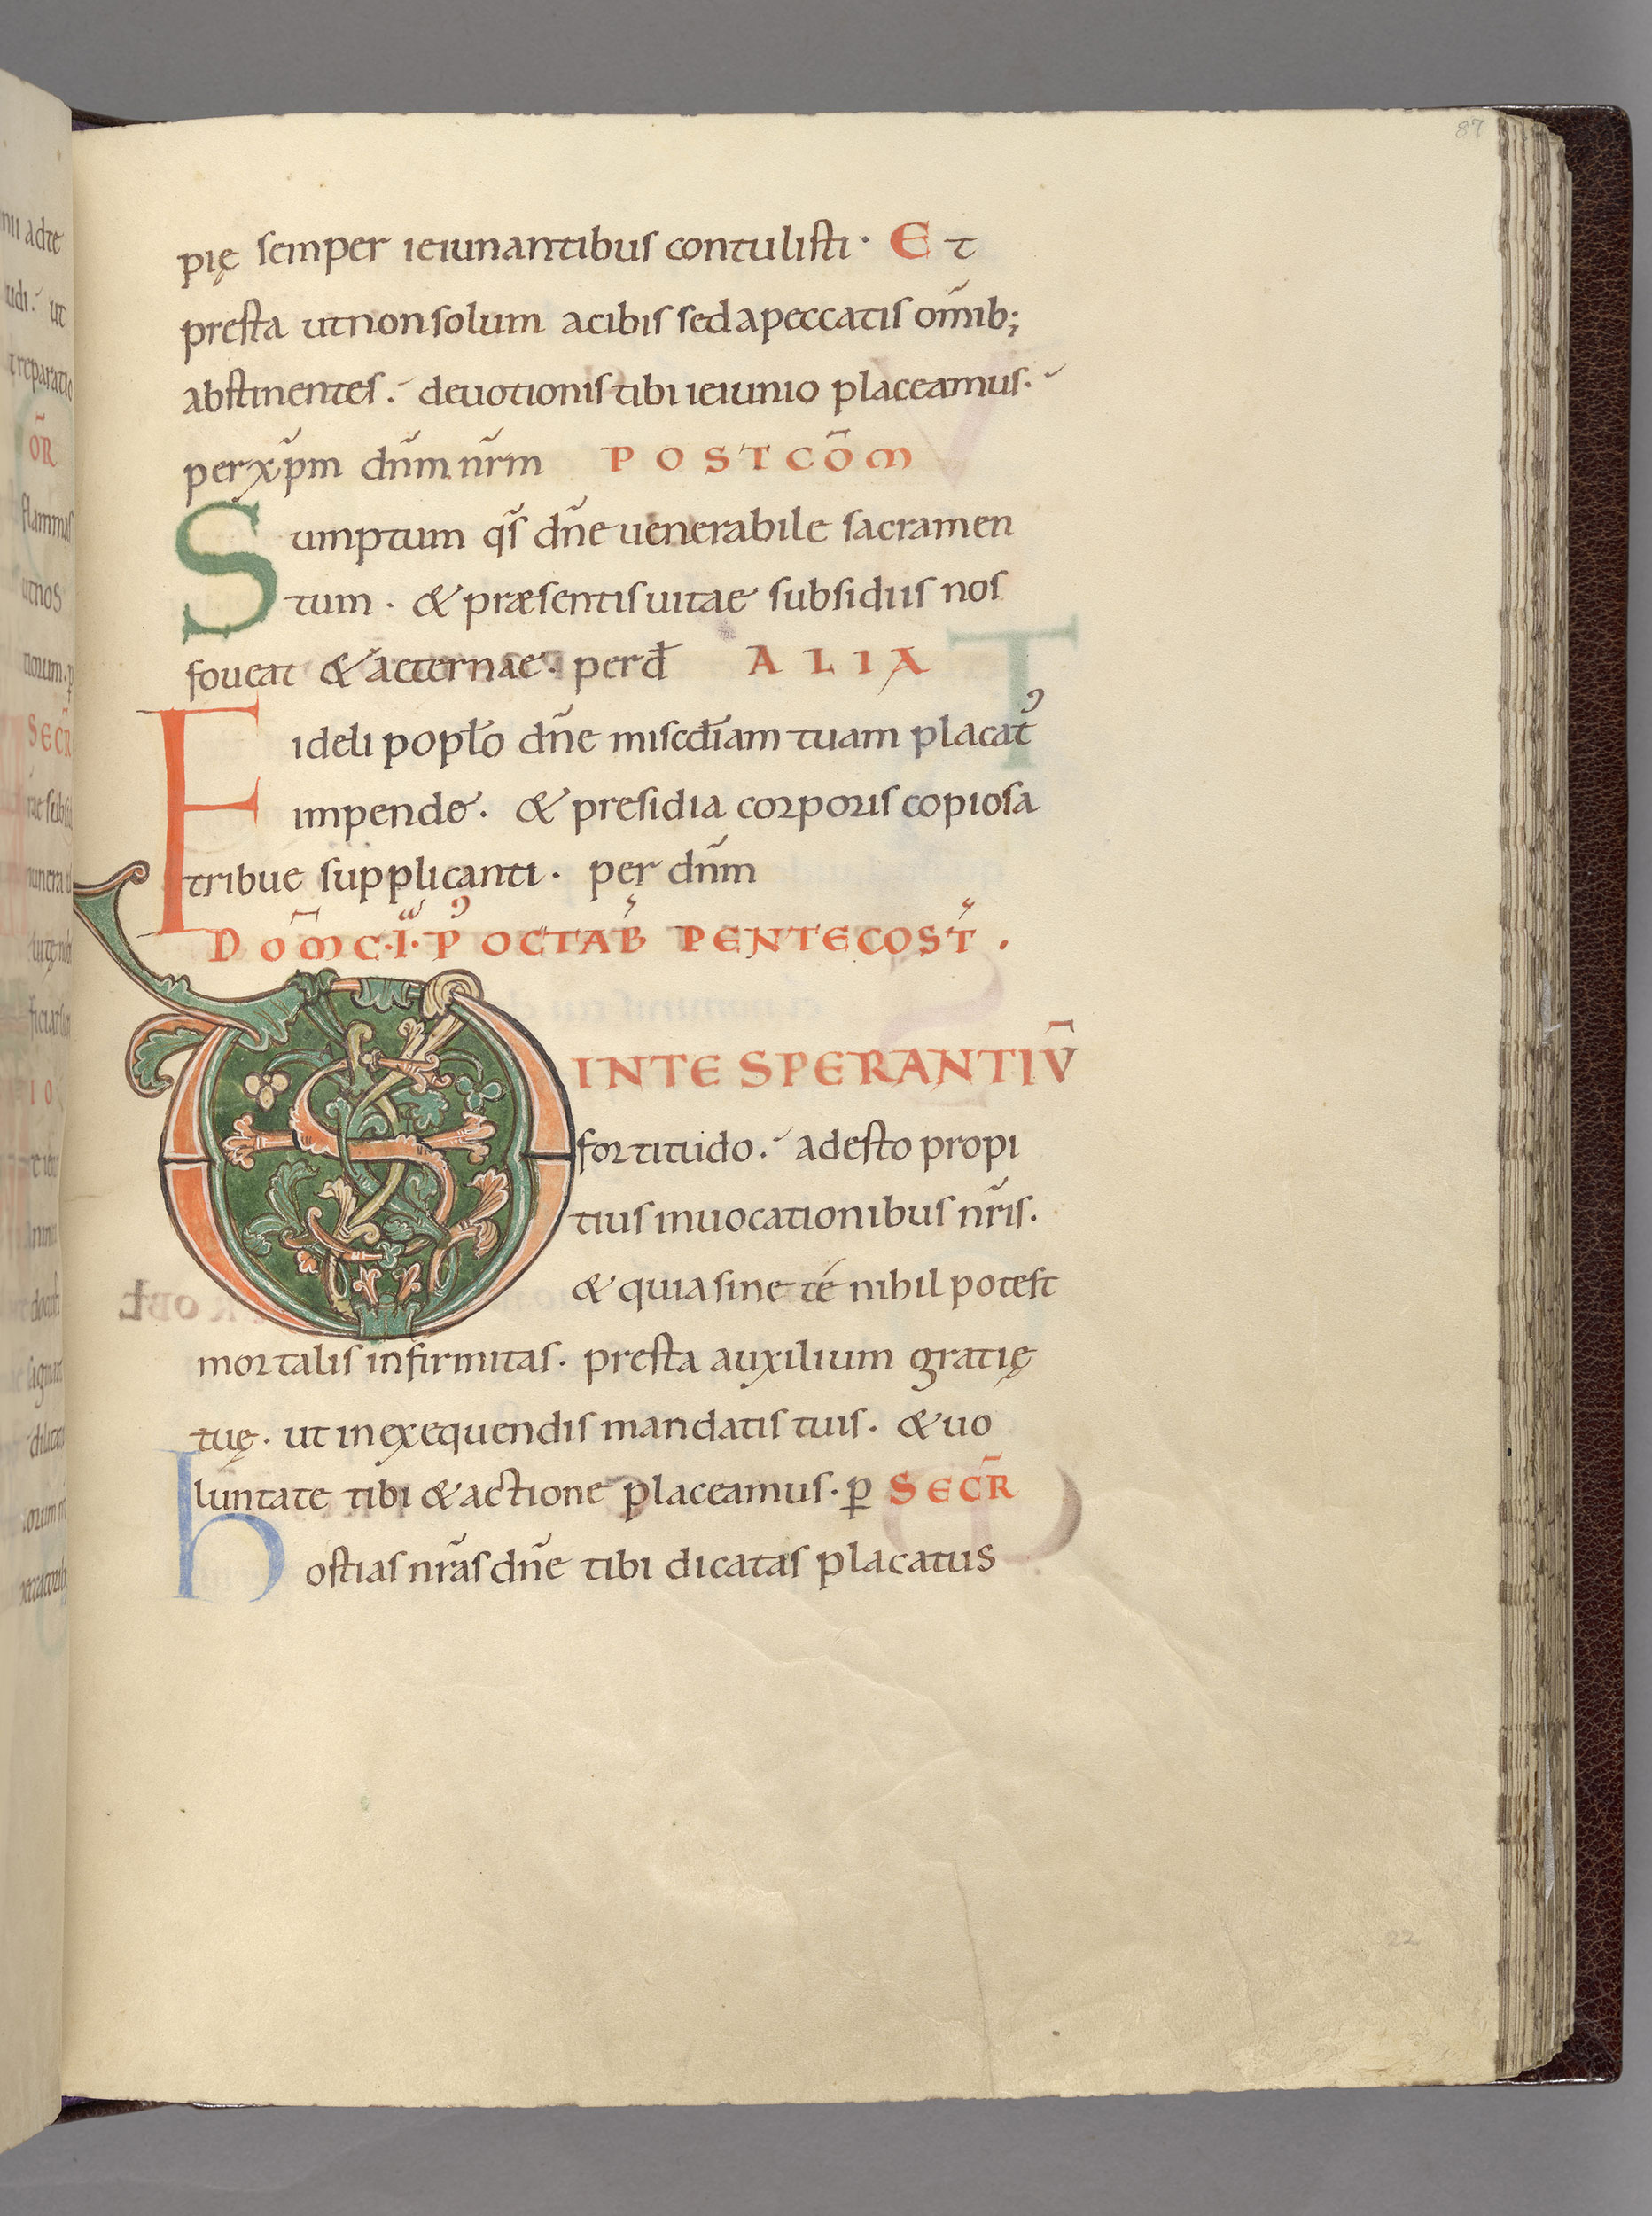 87
pię semper ieiunantibus contulisti · Et
presta ut non solum a cibis sed a peccatis om̄ib;
abstinentes. deuotionis tibi ieiunio placeamus.
per xp̄m dn̄m nr̄m POSTCŌM
Sumptum qs̄ dn̄e uenerabile sacramen
tum · & præsentis uitae subsidiis nos
foueat & aeternae · per đ ALIA
Fideli poplo dn̄e misc̄diam tuam placat᾽
impende · & presidia corporis copiosa
tribue supplicanti · per dn̄m
DOM̄C · I · P᾽ OCTAB̄ PENTECOST̄ .
D̄S IN TE SPERANTIŪ
fortitudo. adesto propi
tius inuocationibus nr̄is.
& quia sine té nihil potest
mortalis infirmitas · presta auxilium gratię
tuę · ut in exequendis mandatis tuis · & uo
luntate tibi & actione placeamus · ꝑ SECR̄
hostias nr̄as dn̄e tibi dicatas placatus
22